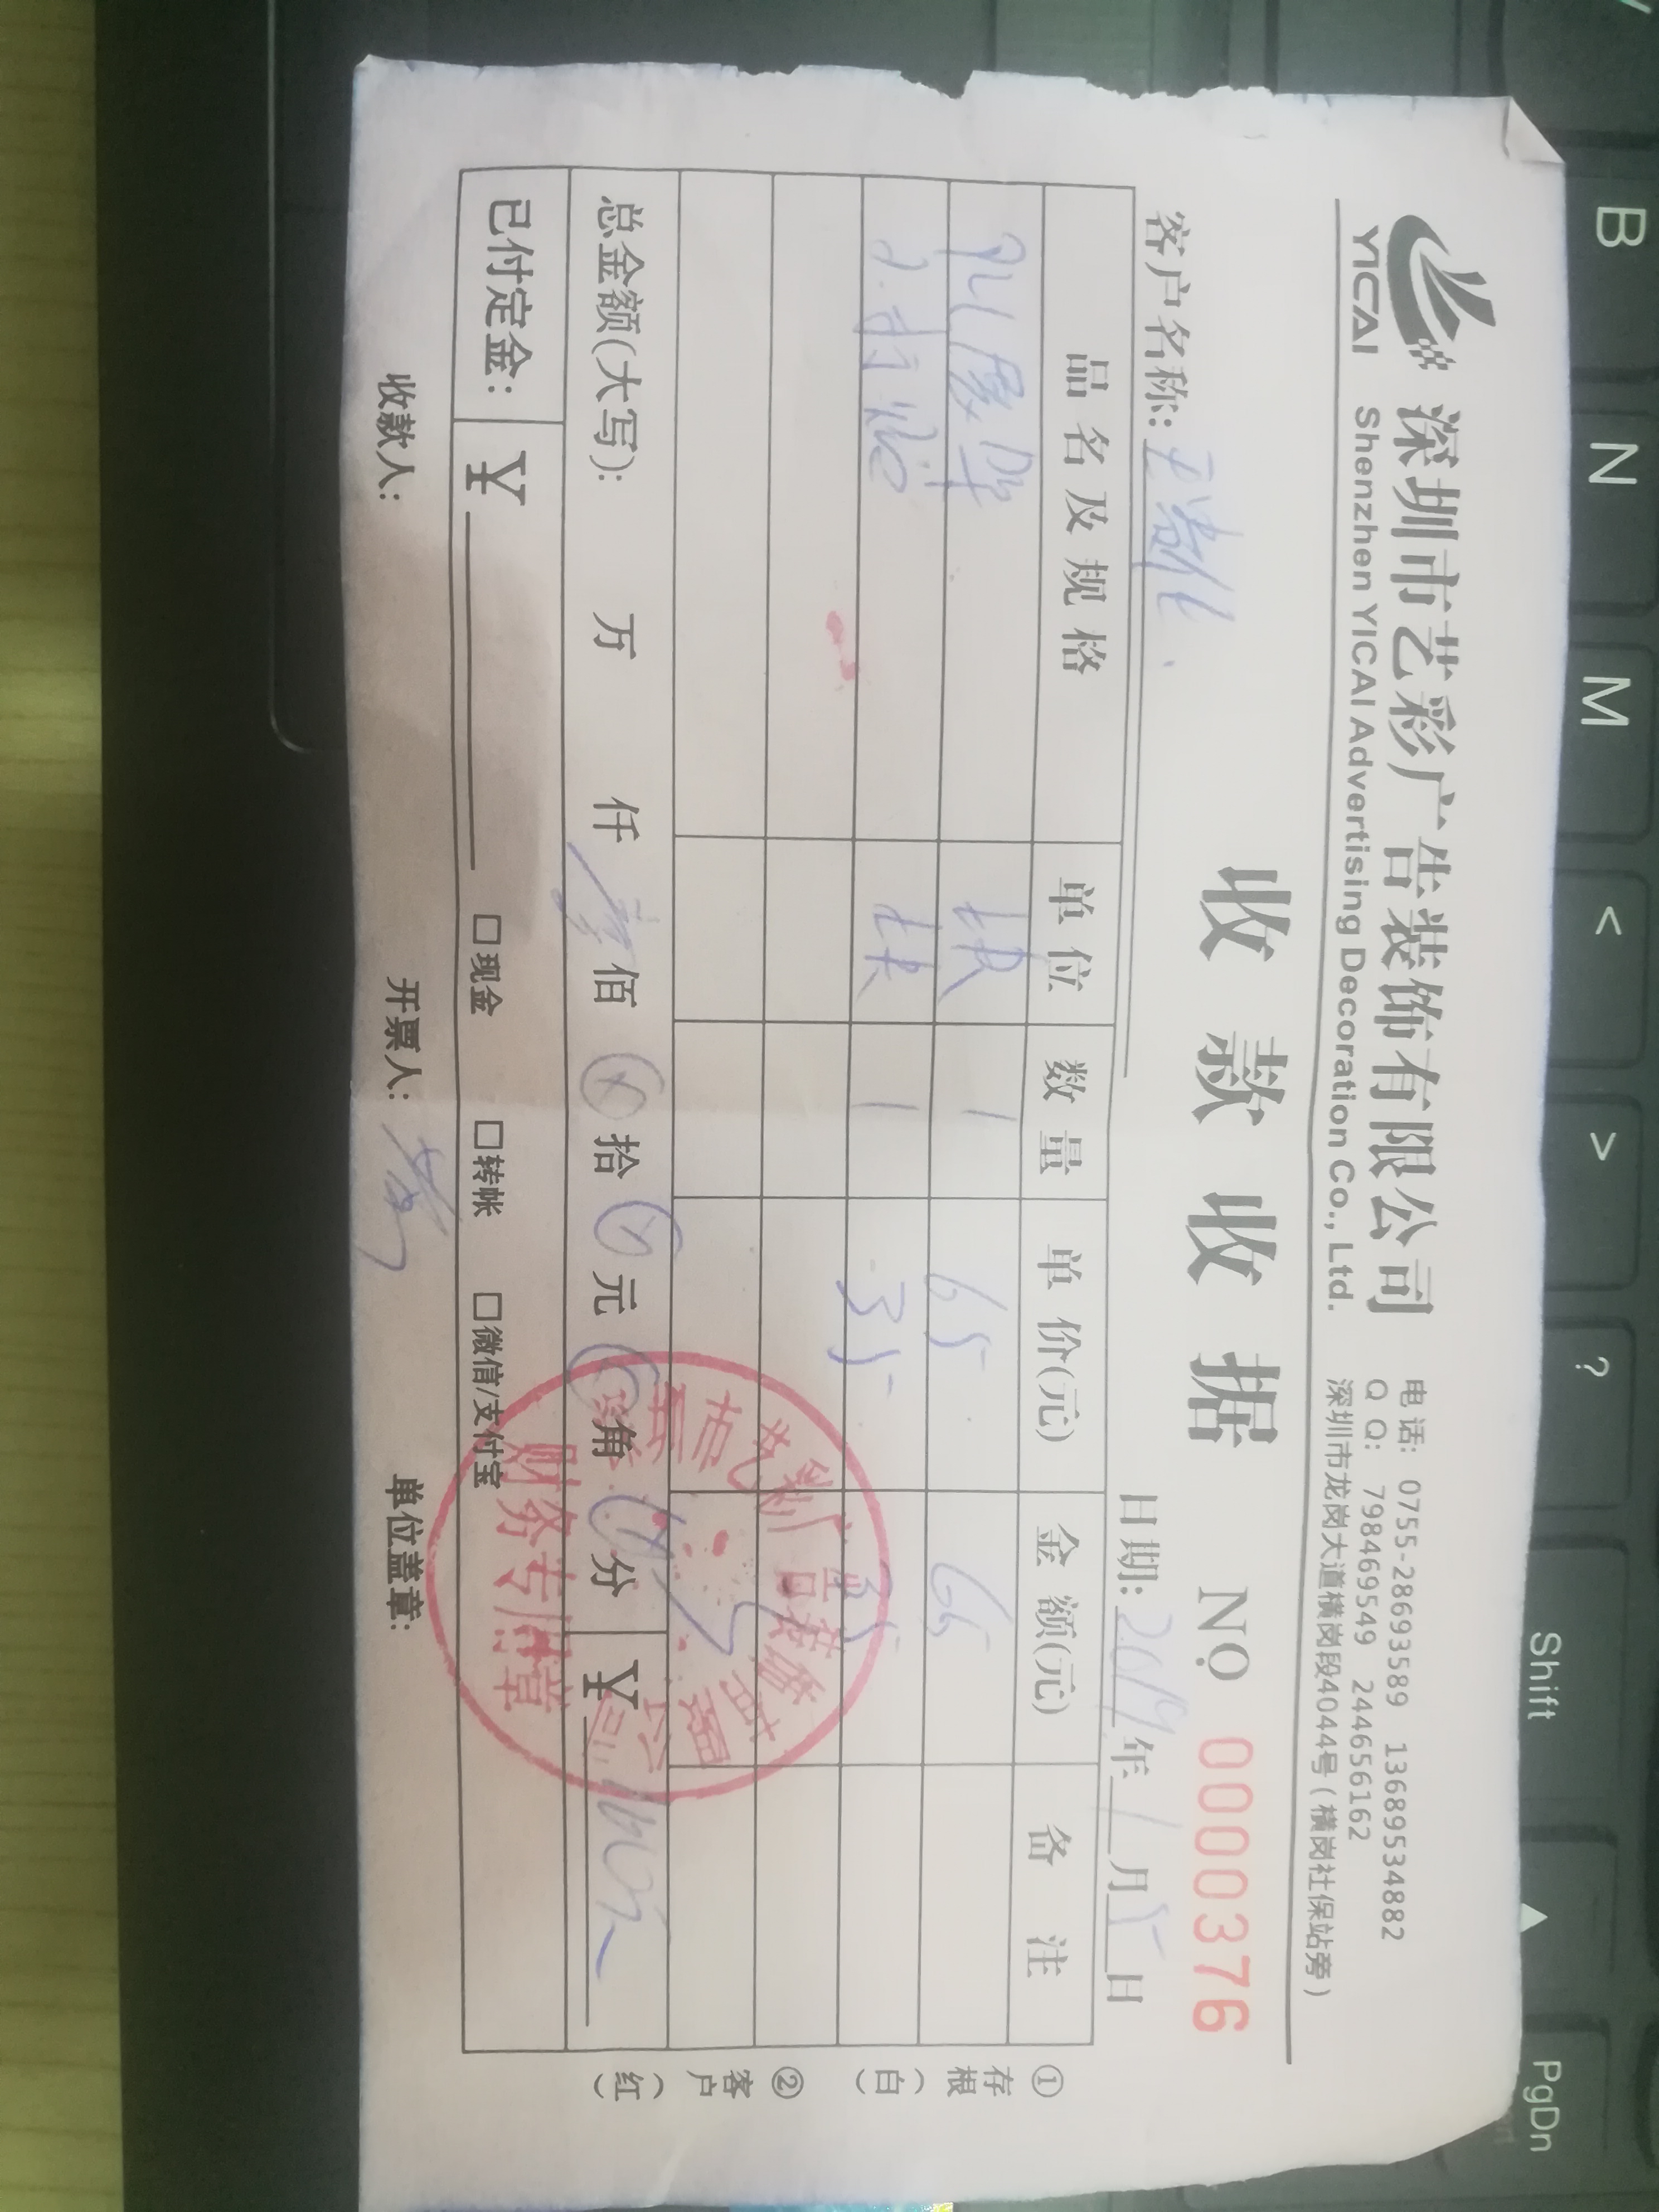 B N M < > ?
Shift ▲ PgDn
深圳市艺彩广告装饰有限公司
YICAI Shenzhen YICAI Advertising Decoration Co., Ltd.
电话: 0755-28693589 13689534882
Q Q: 798469549 244656162
深圳市龙岗大道横岗段4044号(横岗社保站旁)
收款收据 NO 0000376
客户名称:
日期: 2019年1月5日
品名及规格 单位 数量 单价(元) 金额(元) 备注
展架 1 65 65
1 35 35
总金额(大写): 万 仟 壹佰 ⊗拾 ⊗元 ⊗角 ⊗分 ¥ 100元
已付定金: ¥ □现金 □转帐 □微信/支付宝
收款人: 开票人: 单位盖章:
①存根(白) ②客户(红)
深圳市艺彩广告装饰有限公司
财务专用章